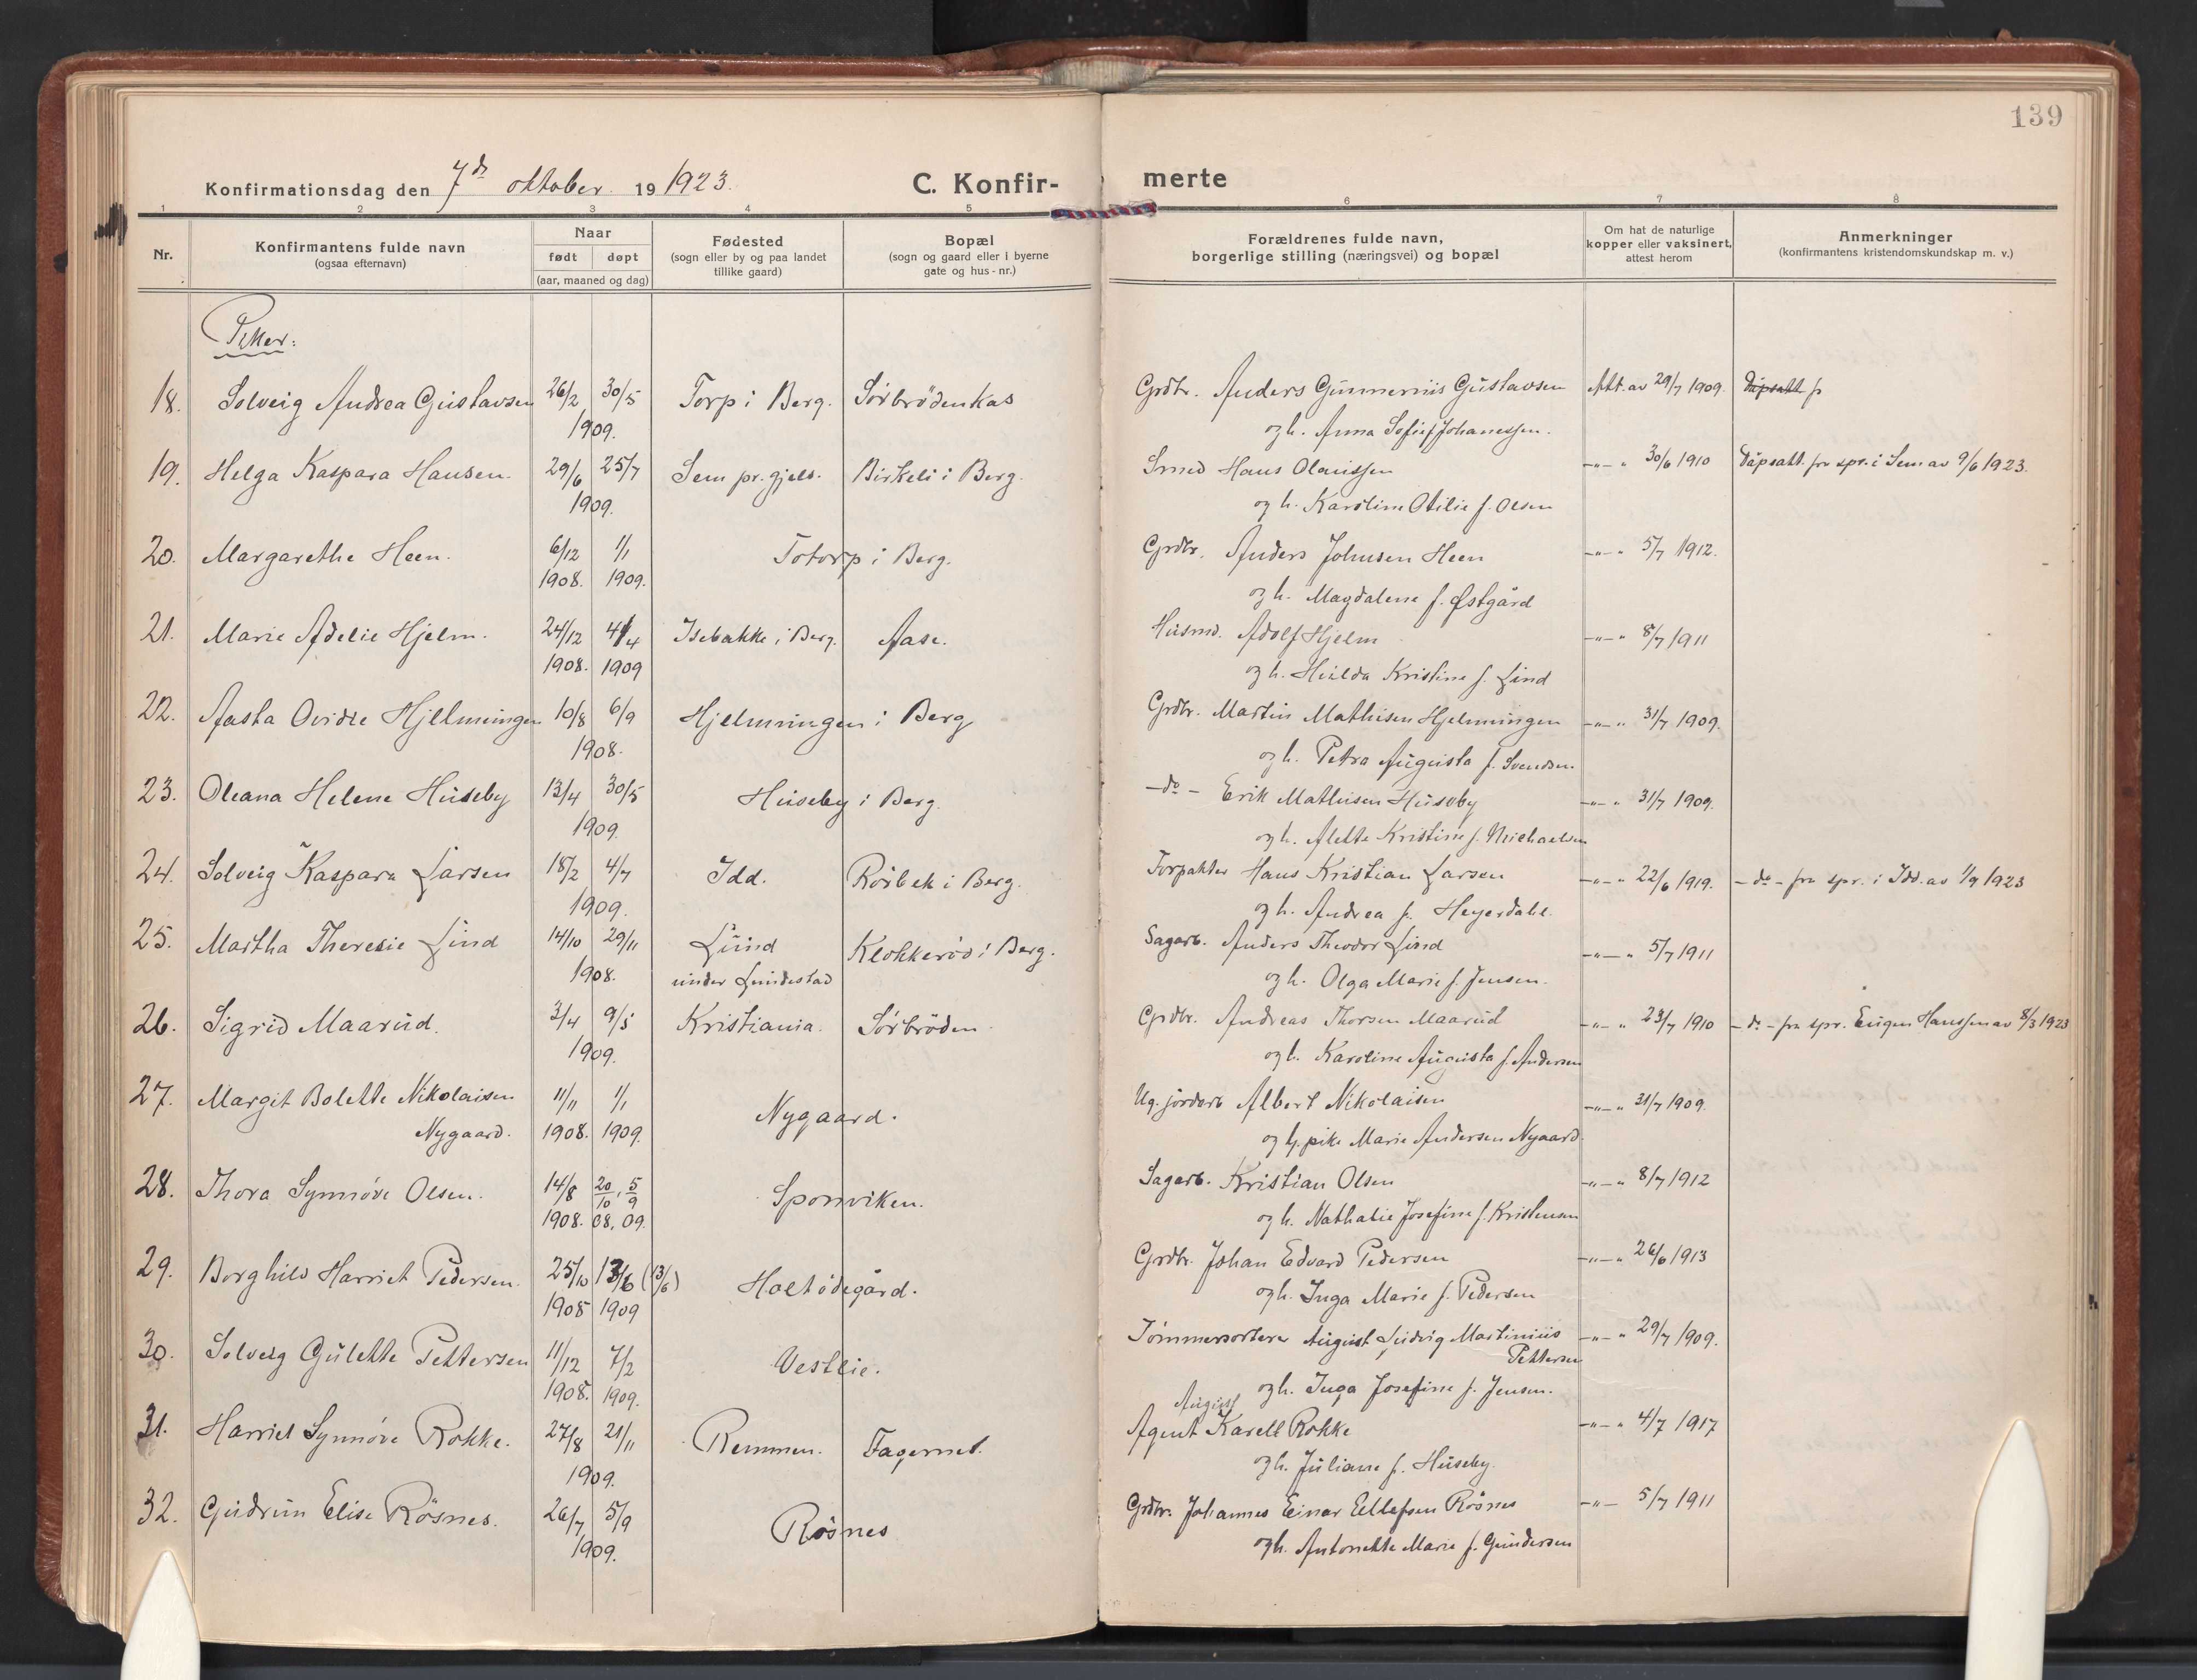 139
Konfirmationsdag den 7de oktober 19 1923.
C. Konfir- merte
1 2 3 4 5 6 7 8
Nr.
Konfirmantens fulde navn
(ogsaa efternavn)
Naar
født døpt
(aar, maaned og dag)
Fødested
(sogn eller by og paa landet
tillike gaard)
Bopæl
(sogn og gaard eller i byerne
gate og hus-nr.)
Forældrenes fulde navn,
borgerlige stilling (næringsvei) og bopæl
Om hat de naturlige
kopper eller vaksinert,
attest herom
Anmerkninger
(konfirmantens kristendomskundskap m. v.)
Piker:
18. Solveig Andrea Gustavsen 26/2 30/5 Torp i Berg. Sörbrödenkas Grdbr. Anders Gunnerius Gustavsen Att. av 29/7 1909. Dåpsatt fr
1909. og h. Anna Sofie f. Johanessen.
19. Helga Kaspara Hansen. 29/6 25/7 Sem pr.gjeld. Birkeli i Berg. Smed Hans Olaussen -"-" 30/6 1910 Dåpsatt. fra spr. i Sem av 9/6 1923.
1909. og h. Karoline Otilie f. Olsen
20. Margarethe Heen. 6/12 1/1 Totorp i Berg. Grdbr. Anders Johnsen Heen -"-" 5/7 1912.
1908. 1909. og h. Magdalene f. Østgård
21. Marie Adelie Hjelm. 24/12 4/4 Isebakke i Berg. Aase. Husmd. Adolf Hjelm -"-" 8/7 1911
1908. 1909 og h. Hulda Kristine f. Lind
22. Aasta Ovidie Hjelmungen 10/8 6/9 Hjelmungen i Berg Grdbr. Martin Mathisen Hjelmungen -"-" 31/7 1909.
1908. og h. Petra Augusta f. Svendsen
23. Oleana Helene Huseby 13/4 30/5 Huseby i Berg. -do- Erik Mathisen Huseby -"-" 31/7 1909.
1909. og h. Alette Kristine f. Michaelsen
24. Solveig Kaspara Larsen 18/2 4/7 Idd. Rörbek i Berg. Forpakter Hans Kristian Larsen -"-" 22/6 1919. -do- fra spr. i Idd. av 1/9 1923
1909. og h. Andrea f. Heyerdahl.
25. Martha Theresie Lind 14/10 29/11 Lund Klokkeröd i Berg. Sagarb. Anders Theodor Lind -"-" 5/7 1911
1908. under Lundestad og h. Olga Marie f. Jensen.
26. Sigrid Maarud. 3/4 9/5 Kristiania. Sörbröden Grdbr. Andreas Thorsen Maarud -"-" 23/7 1910 -do- fra spr. Eugen Hanssen av 8/3 1923
1909. og h. Karoline Augusta f. Andersen
27. Margit Bolette Nikolaisen 11/11 1/1 Nygaard. Ug. jordarb Albert Nikolaisen -"-" 31/7 1909.
Nygaard. 1908. 1909. og tj.pike Marie Andersen Nygaard.
28. Thora Synnöve Olsen. 14/8 20/10, 5/9 Sponviken. Sagarb. Kristian Olsen -"-" 8/7 1912
1908. 08, 09. og h. Nathalie Josefine f. Kristensen
29. Borghild Harriet Pedersen. 25/10 13/6 (13/6) Holtödegård. Grdbr. Johan Edvard Pedersen -"-" 26/6 1913
1908 1909 og h. Inga Marie f. Pedersen
30. Solveig Gulette Pettersen 11/12 7/2 Vestlie. Tömmersorterer August Ludvig Martinius -"-" 29/7 1909.
Pettersen
1908. 1909. og h. Inga Josefine f. Jensen.
August
31. Harriet Synnöve Rokke. 27/8 21/11 Remmen. Fagernes. Agent Karell Rokke -"-" 4/7 1917
1909. og h. Juliane f. Huseby.
32. Gudrun Elise Rösnes. 26/7 5/9 Rösnes Grdbr. Johannes Einar Ellefsen Rösnes -"- 5/7 1911
1909. og h. Antonette Marie f. Gundersen